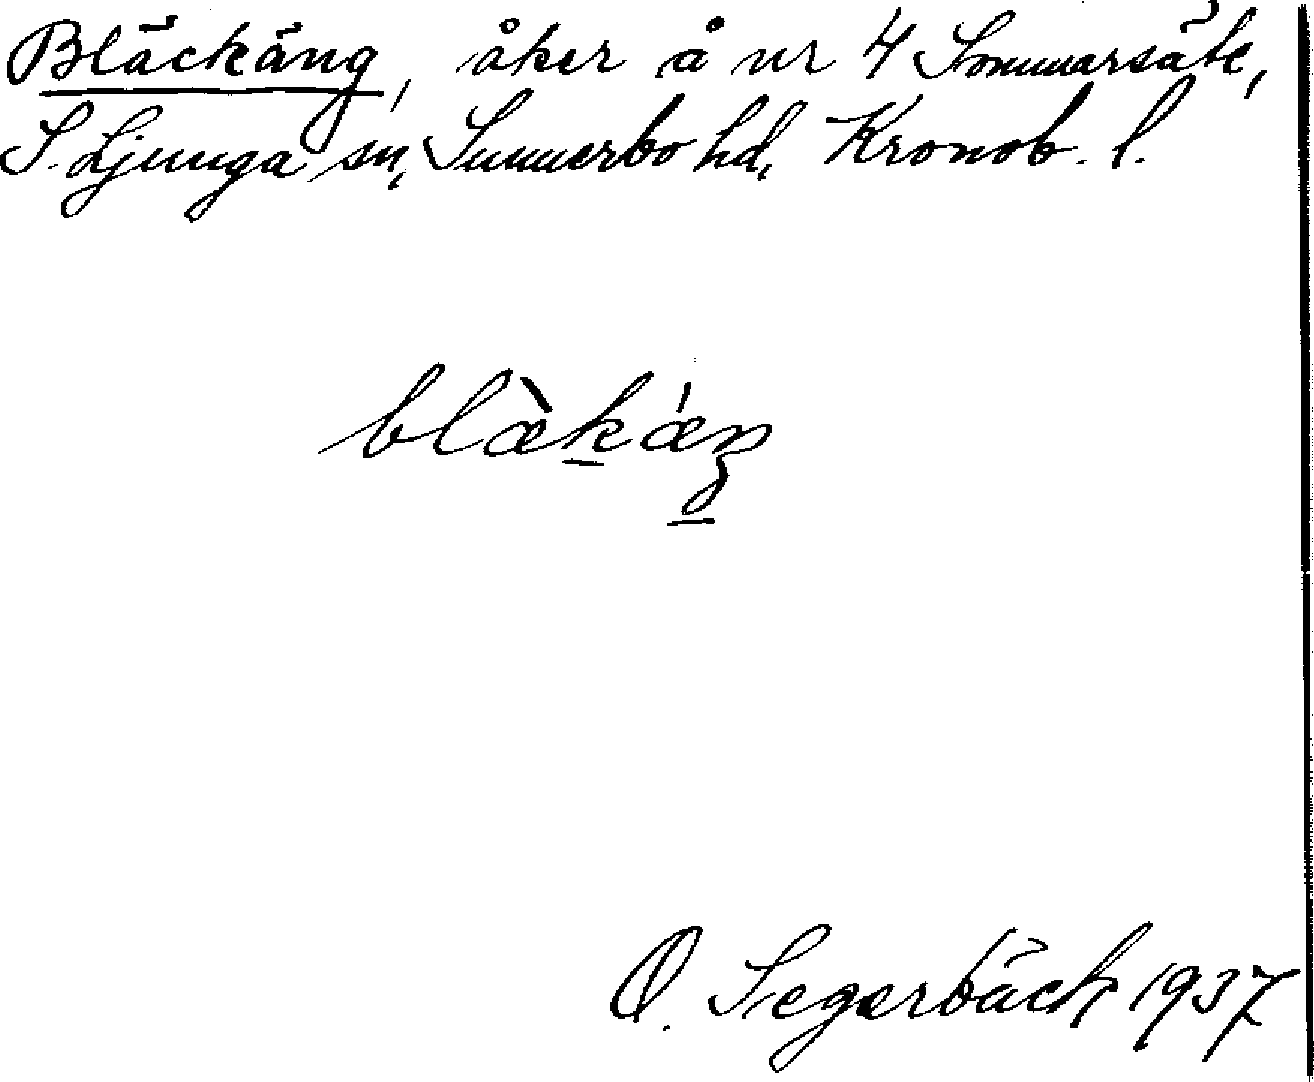 Bläckäng, åker å nr 4 Sommarsäte,
S. Ljunga sn, Sunnerbo hd, Kronob. l.
blæ̀kǽŋ
O. Segerbäck 1937